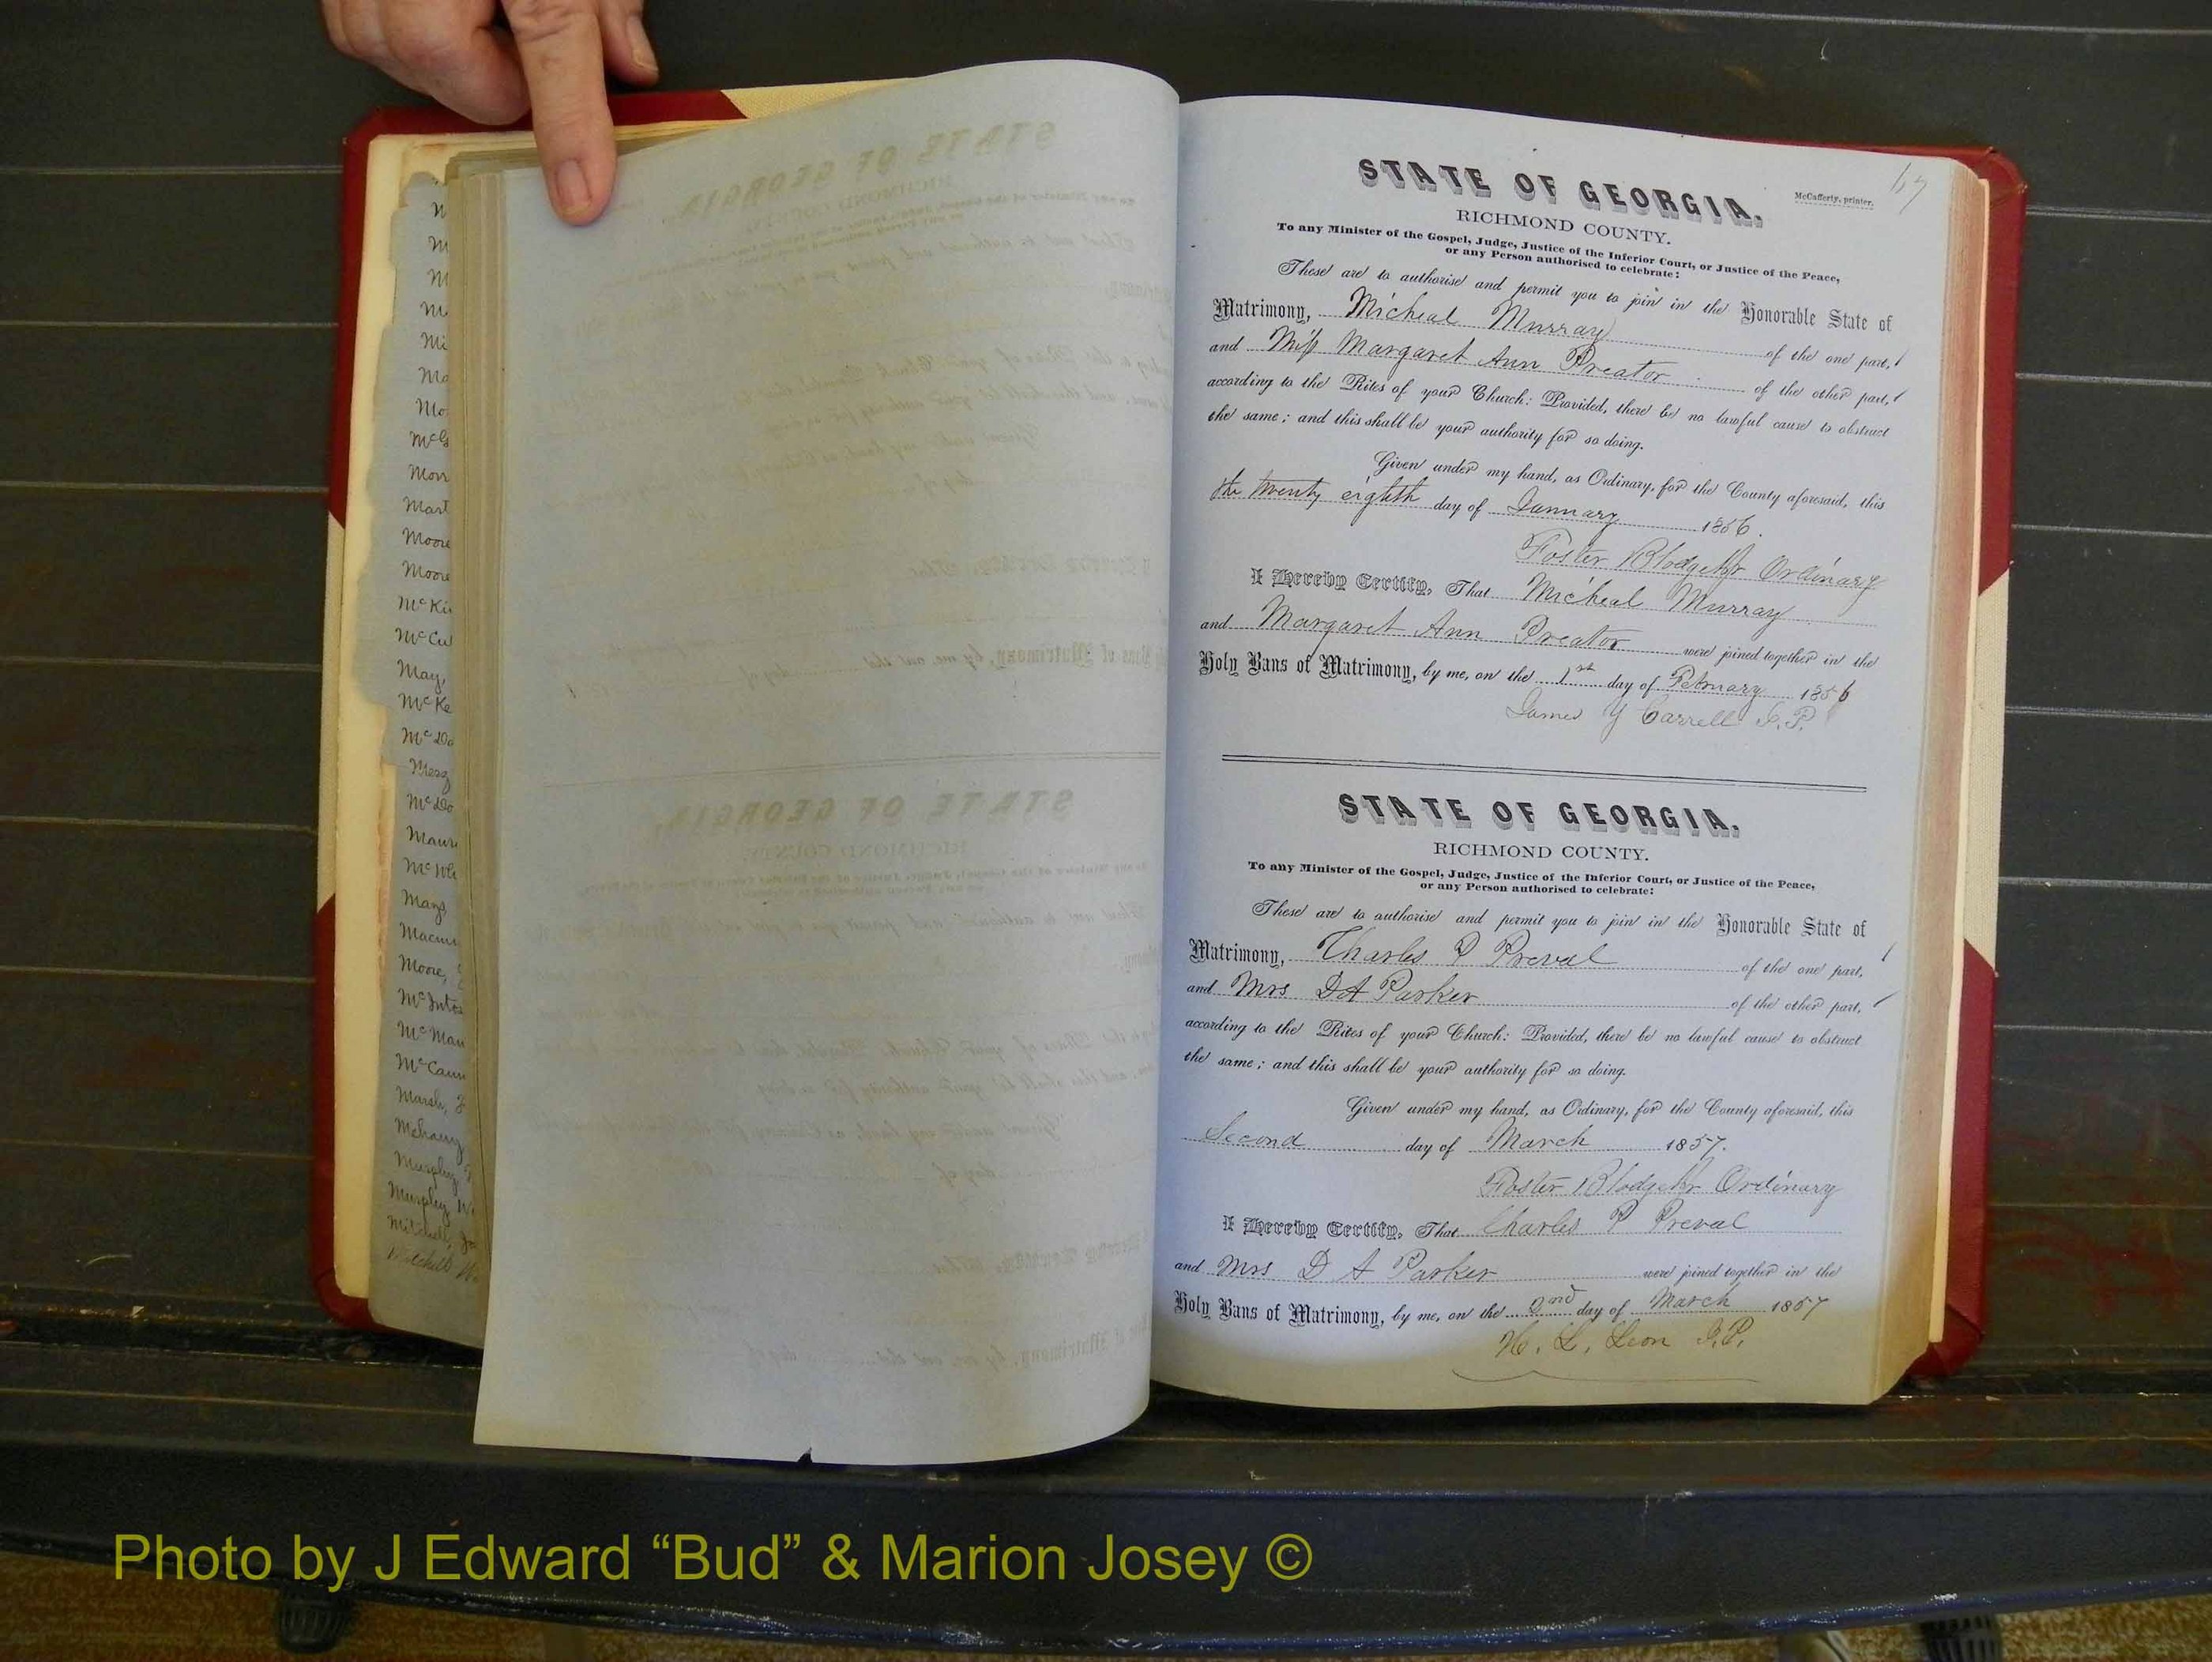 M
M
M
M
Mi
Ma
Mo
McG
Morr
Mart
Moore
Moore
McKi
McCu
May,
McKe
McDo
Merz
McDo
Maur
McWh
Mays,
Macmu
Moore,
McIntos
McMan
McCann
Marsh, J
Mehany
Murphy
Murphy
Mitchell, Jo
Mitchell W
67
STATE OF GEORGIA.
McCafferty, printer.
RICHMOND COUNTY.
To any Minister of the Gospel, Judge, Justice of the Inferior Court, or Justice of the Peace,
or any Person authorised to celebrate:
These are to authorise and permit you to join in the Honorable State of
Matrimony, Micheal Murray of the one part,
and Miss Margaret Ann Preator of the other part,
according to the Rites of your Church: Provided, there be no lawful cause to obstruct
the same; and this shall be your authority for so doing.
Given under my hand, as Ordinary, for the County aforesaid, this
the twenty eighth day of January 1856.
Foster Blodget Jr Ordinary
I Hereby Certify, That Micheal Murray
and Margaret Ann Preator were joined together in the
Holy Bans of Matrimony, by me, on the 1st day of February 1856
James Y Carrell J.P.
STATE OF GEORGIA.
RICHMOND COUNTY.
To any Minister of the Gospel, Judge, Justice of the Inferior Court, or Justice of the Peace,
or any Person authorised to celebrate:
These are to authorise and permit you to join in the Honorable State of
Matrimony, Charles P Preval of the one part,
and Mrs D A Parker of the other part,
according to the Rites of your Church: Provided, there be no lawful cause to obstruct
the same; and this shall be your authority for so doing.
Given under my hand, as Ordinary, for the County aforesaid, this
Second day of March 1857.
Foster Blodget Jr Ordinary
I Hereby Certify, That Charles P Preval
and Mrs D A Parker were joined together in the
Holy Bans of Matrimony, by me, on the 2nd day of March 1857
H. L. Leon J.P.
Photo by J Edward “Bud” & Marion Josey ©